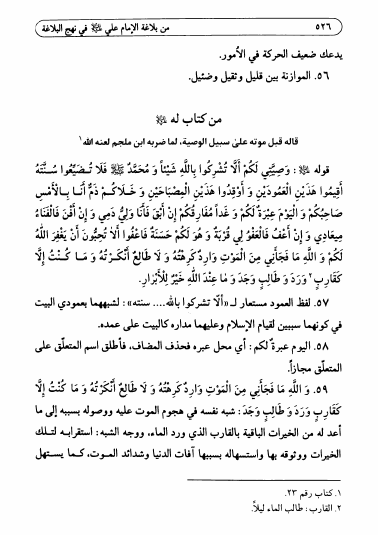 ٥٢٦ من بلاغة الإمام علي ﷺ في نهج البلاغة
يدعك ضعيف الحركة في الأمور.
٥٦. الموازنة بين قليل وثقيل وضئيل.
من كتاب له ﷺ
قاله قبل موته على سبيل الوصية، لما ضربه ابن ملجم لعنه الله١
قوله ﷺ: وَصِيَّتِي لَكُمْ أَلَّا تُشْرِكُوا بِاللَّهِ شَيْئاً وَ مُحَمَّدٌ ﷺ فَلَا تُضَيِّعُوا سُنَّتَهُ
أَقِيمُوا هَذَيْنِ الْعَمُودَيْنِ وَ أَوْقِدُوا هَذَيْنِ الْمِصْبَاحَيْنِ وَ خَلَاكُمْ ذَمٌّ أَنَا بِالْأَمْسِ
صَاحِبُكُمْ وَ الْيَوْمَ عِبْرَةٌ لَكُمْ وَ غَداً مُفَارِقُكُمْ إِنْ أَبْقَ فَأَنَا وَلِيُّ دَمِي وَ إِنْ أَفْنَ فَالْفَنَاءُ
مِيعَادِي وَ إِنْ أَعْفُ فَالْعَفْوُ لِي قُرْبَةٌ وَ هُوَ لَكُمْ حَسَنَةٌ فَاعْفُوا أَلَا تُحِبُّونَ أَنْ يَغْفِرَ اللَّهُ
لَكُمْ وَ اللَّهِ مَا فَجَأَنِي مِنَ الْمَوْتِ وَارِدٌ كَرِهْتُهُ وَ لَا طَالِعٌ أَنْكَرْتُهُ وَ مَا كُنْتُ إِلَّا
كَقَارِبٍ٢ وَرَدَ وَ طَالِبٍ وَجَدَ وَ مَا عِنْدَ اللَّهِ خَيْرٌ لِلْأَبْرَارِ.
٥٧. لفظ العمود مستعار لـ «ألا تشركوا بالله.... سنته»: لشبههما بعمودي البيت
في كونهما سببين لقيام الإسلام وعليهما مداره كالبيت على عمده.
٥٨. اليوم عبرةٌ لكم: أي محل عبره فحذف المضاف، فأطلق اسم المتعلق على
المتعلق مجازاً.
٥٩. وَ اللَّهِ مَا فَجَأَنِي مِنَ الْمَوْتِ وَارِدٌ كَرِهْتُهُ وَ لَا طَالِعٌ أَنْكَرْتُهُ وَ مَا كُنْتُ إِلَّا
كَقَارِبٍ وَرَدَ وَ طَالِبٍ وَجَدَ: شبه نفسه في هجوم الموت عليه ووصوله بسببه إلى ما
أعد له من الخيرات الباقية بالقارب الذي ورد الماء، ووجه الشبه: استقرابه لتلك
الخيرات ووثوقه بها واستسهاله بسببها آفات الدنيا وشدائد الموت، كما يستهل
١. كتاب رقم ٢٣.
٢. القارب: طالب الماء ليلاً.